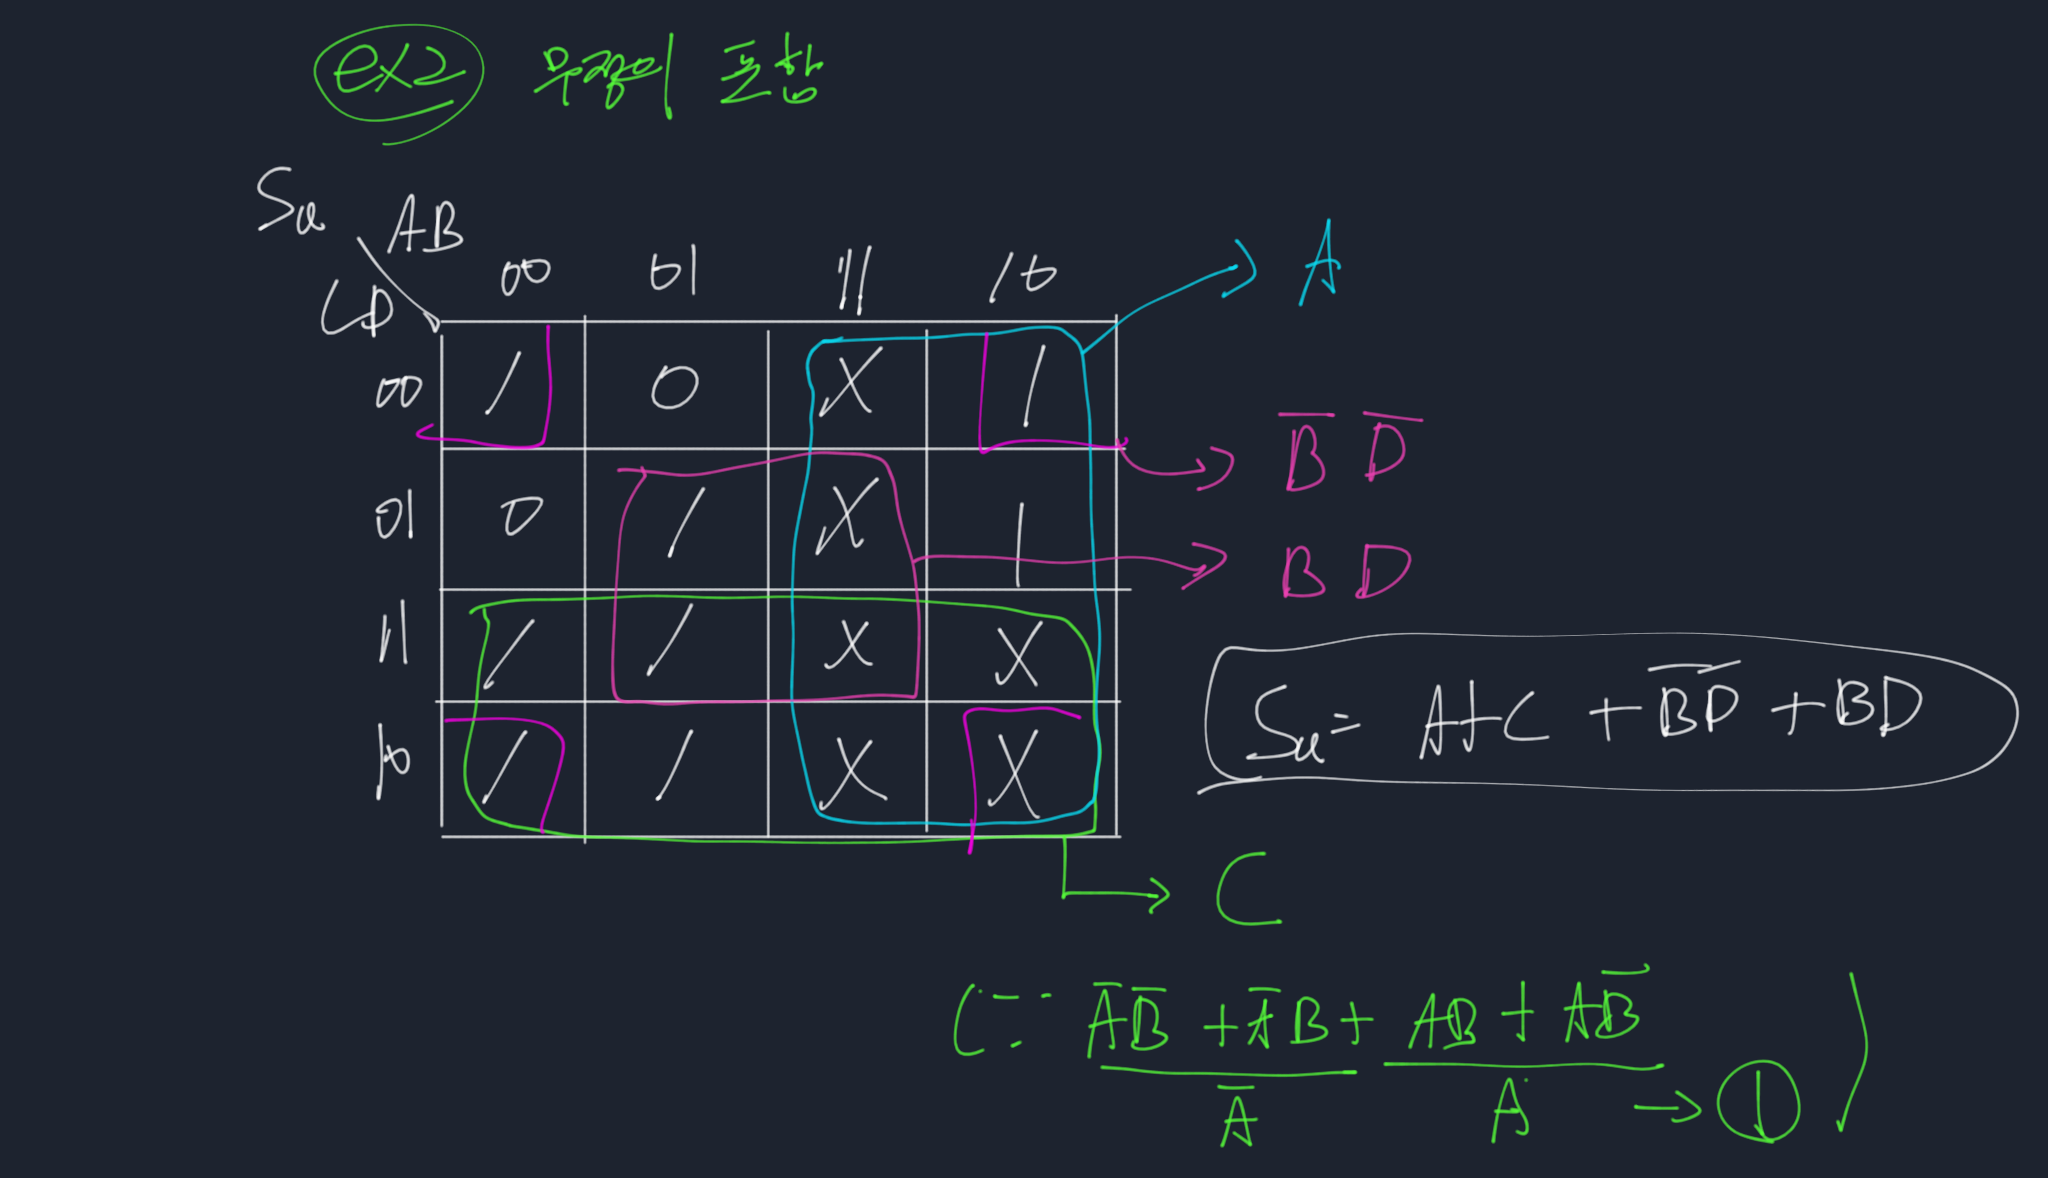 ex2 무정의 포함
Sa AB
CD 00 01 11 10
00 1 0 X 1
01 0 1 X 1
11 1 1 X X
10 1 1 X X
A
B̅ D̅
B D
C
Sa = A+C + B̅D̅ + BD
(∵ A̅B̅ + A̅B + AB + AB̅
A̅ A → ①)